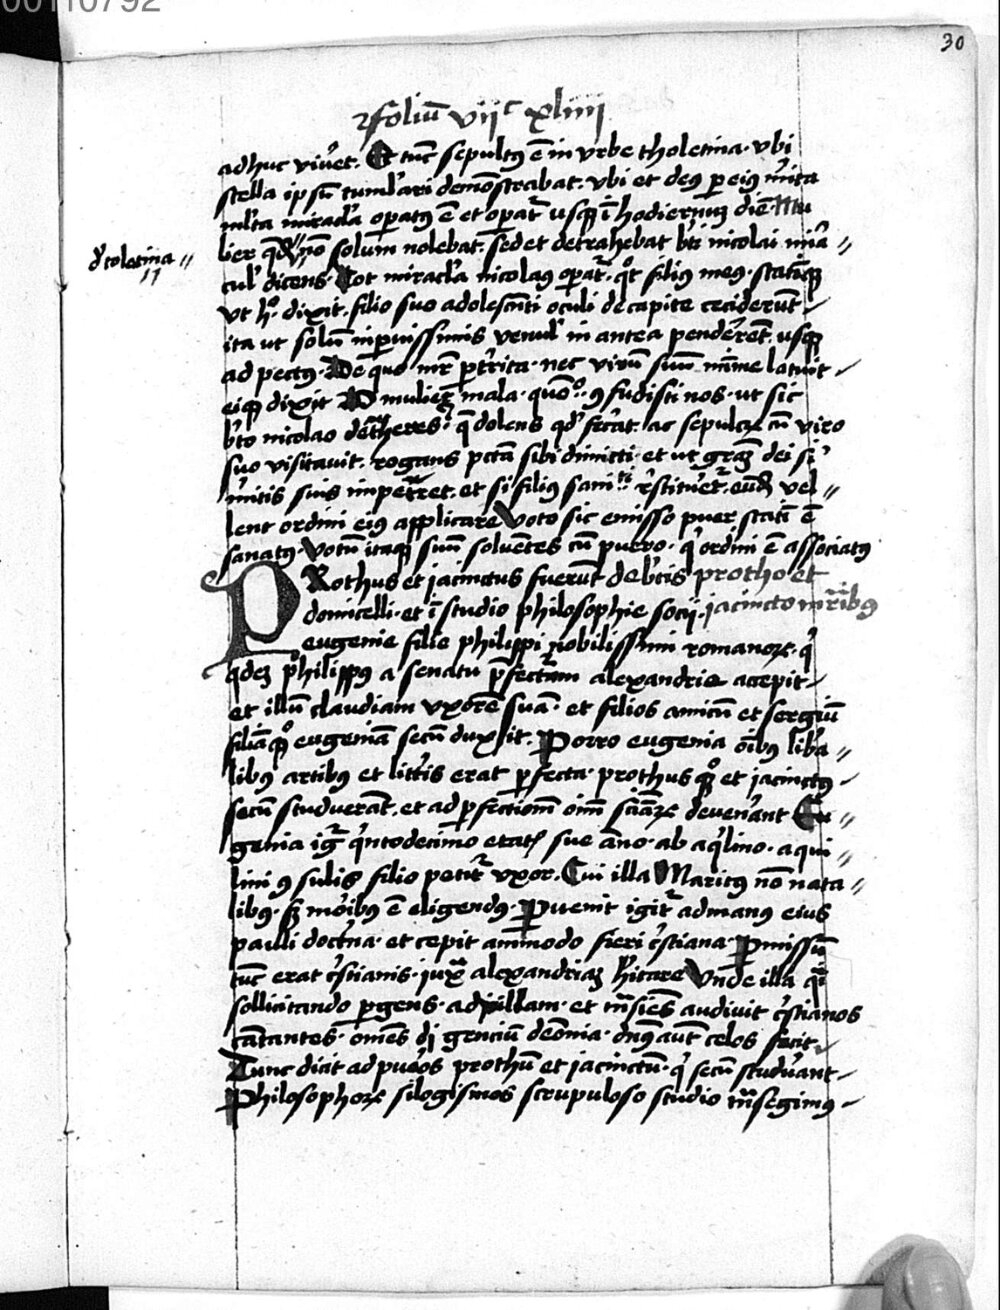 00110792
30
foliū vijᶜ xliiij
adhuc viveret. Et tūc sepultꝰ ē in urbe tholetina. ubi
stella ipsū tumulari demōstrabat. ubi et deꝰ per eiꝰ merita
multa miracla operatꝰ ē et operatur usqꝫ ī hodiernuꝫ diē. Mu
lier qdā nō solum nolebat. sed et detrahebat bti nicolai mira //
cul' dicens. Tot miracla nicolaꝰ operatur. qt filiꝰ meꝰ. statimqꝫ
d' toletina //
ut hoc dixit. filio suo adolescenti oculi de capite ceciderunt
ita ut solum nervis venulis in antea penderent. usqꝫ
ad pectꝰ. De quo mater perterrita. nec virū suum minime latuit
eiqꝫ dixit O mulier mala. quō ꝯfudisti nos. ut sic
bto nicolao detraheres. que dolens qd fecerat. ac sepulcrꝫ cū viro
suo visitavit. rogans pctā sibi dimitti. et ut grāꝫ dei si
meritis suis impetraret. et si filiꝰ sanitati restitueretur. eundē vel //
lent ordini eiꝰ applicare Voto sic emisso puer statī ē
sanatꝰ. Votū itaqꝫ suū solventes cū puero. qui ordini ē associatꝰ
PRothus et jacinctus fuerunt de btis protho et
domicelli. et ī studio philosophie socij. jacincto mribꝰ
eugenie filie philippi nobilissimi romanorꝫ. qui
qdeꝫ philippꝰ a senatu prefecturam alexandrie accepit
et illuc claudiam uxorē suā. et filios avicum et sergiū
filiāqꝫ eugeniā secū duxit. Porro eugenia oībꝰ libera //
libꝰ artibꝰ et litteris erat perfecta. prothus qꝫ et jacinctꝰ
secū studuerāt. et ad perfectionem omniū sciarꝫ devenerant Eu //
genia igitur quintodecimo etatis sue āno. ab aquilino. aqui //
lini ꝯsulis filio petitur uxor. Cui illa Maritꝰ nō nata //
libꝰ. sꝫ moribꝰ ē eligendꝰ. Pervenit igitur ad manꝰ eius
pauli doctrina. et cepit animo fieri cristiana. Permissū
tūc erat cristianis. juxta alexandriaꝫ habitare Unde illa quasi
sollicitando pergens. ad villam. et transiens audivit cristianos
cātantes. omēs dij genciū deōnia. dnꝰ aut celos fecit
Tunc dicit ad pueros prothū et jacinctū. qui secū studuerant
Philosophorꝫ silogismos scrupuloso studio transegimꝰ